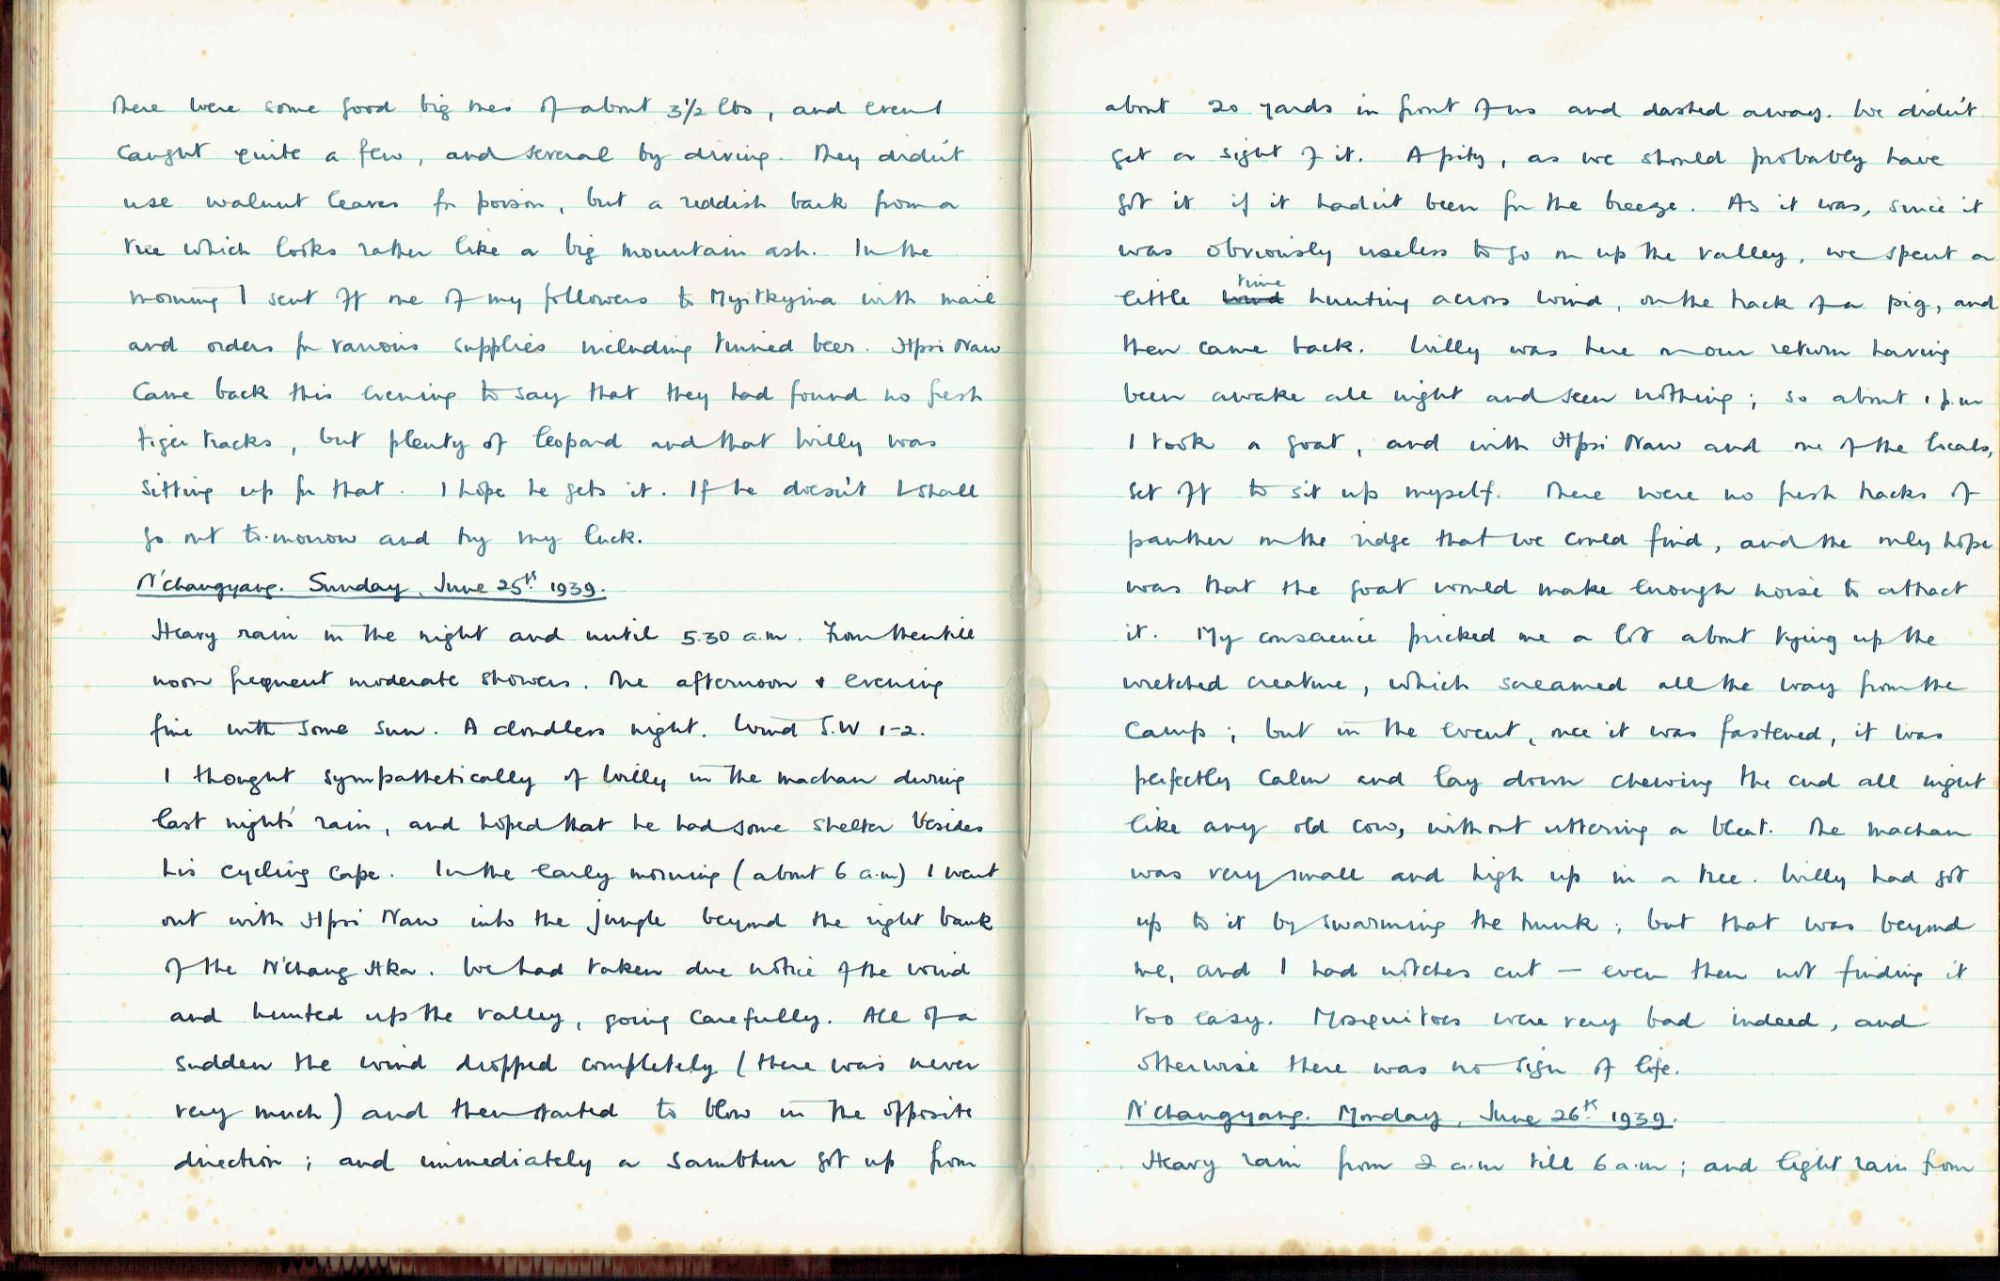 There were some good big ones of about 3½ lbs, and
caught quite a few, and several by diving. They didn't
use walnut leaves for poison, but a reddish bark from a
tree which looks rather like a big mountain ash. In the
morning I sent off one of my followers to Myitkyina with mail
and orders for various supplies including tinned beer. Hpsi Naw
came back this evening to say that they had found no fresh
tiger tracks, but plenty of leopard and that Willy was
sitting up for that. I hope he gets it. If he doesn't I shall
go out to-morrow and try my luck.
N'changyang. Sunday, June 25th 1939.
Heavy rain in the night and until 5.30 a.m. From then till
noon frequent moderate showers. The afternoon & evening
fine with some sun. A cloudless night. Wind S.W 1-2.
I thought sympathetically of Willy in the machan during
last night's rain, and hoped that he had some shelter besides
his cycling cape. In the early morning (about 6 a.m) I went
out with Hpsi Naw into the jungle beyond the right bank
of the N'chang Hka. We had taken due notice of the wind
and hunted up the valley, going carefully. All of a
sudden the wind dropped completely (there was never
very much) and then started to blow in the opposite
direction; and immediately a sambhur got up from
about 20 yards in front of us and dashed away. We didn't
get a sight of it. A pity, as we should probably have
got it if it hadn't been for the breeze. As it was, since it
was obviously useless to go on up the valley, we spent a
little time hunting across wind, on the track of a pig, and
then came back. Willy was here on our return having
been awake all night and seen nothing; so about 1 p.m
I took a goat, and with Hpsi Naw and one of the locals,
set off to sit up myself. There were no fresh tracks of
panther on the ridge that we could find, and the only hope
was that the goat would make enough noise to attract
it. My conscience pricked me a lot about tying up the
wretched creature, which screamed all the way from the
camp; but in the event, once it was fastened, it was
perfectly calm and lay down chewing the cud all night
like any old cow, without uttering a bleat. The machan
was very small and high up in a tree. Willy had got
up to it by swarming the trunk; but that was beyond
me, and I had notches cut — even then not finding it
too easy. Mosquitoes were very bad indeed, and
otherwise there was no sign of life.
N'changyang. Monday, June 26th 1939.
Heavy rain from 2 a.m till 6 a.m; and light rain from